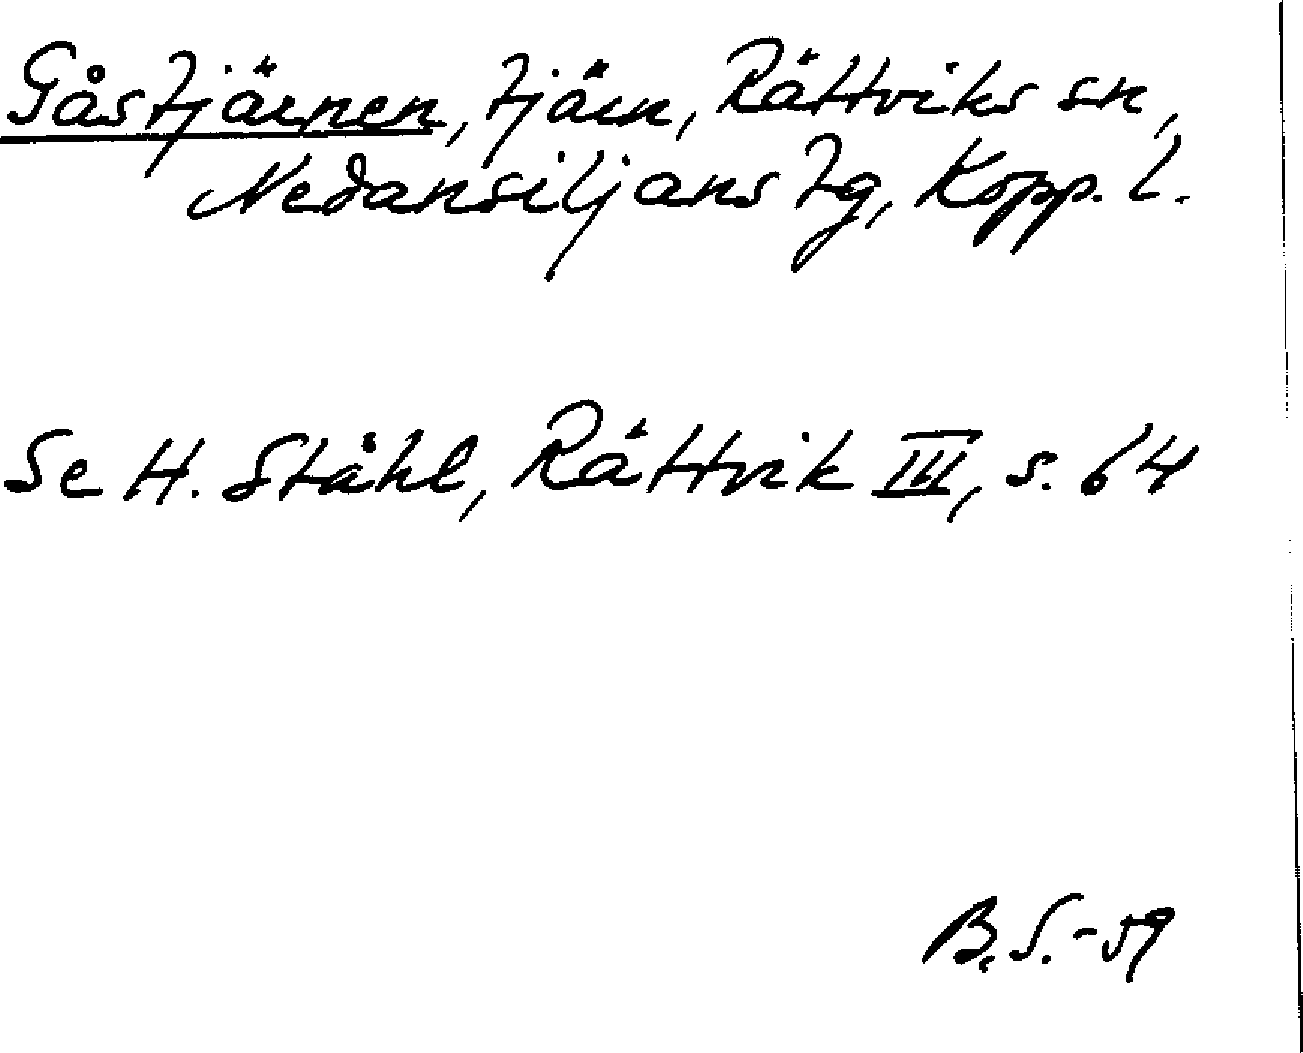 Gåstjärnen, tjärn, Rättviks sn,
Nedansiljans tg, Kopp. l.
Se H. Ståhl, Rättvik III, s. 64
B. S. -59